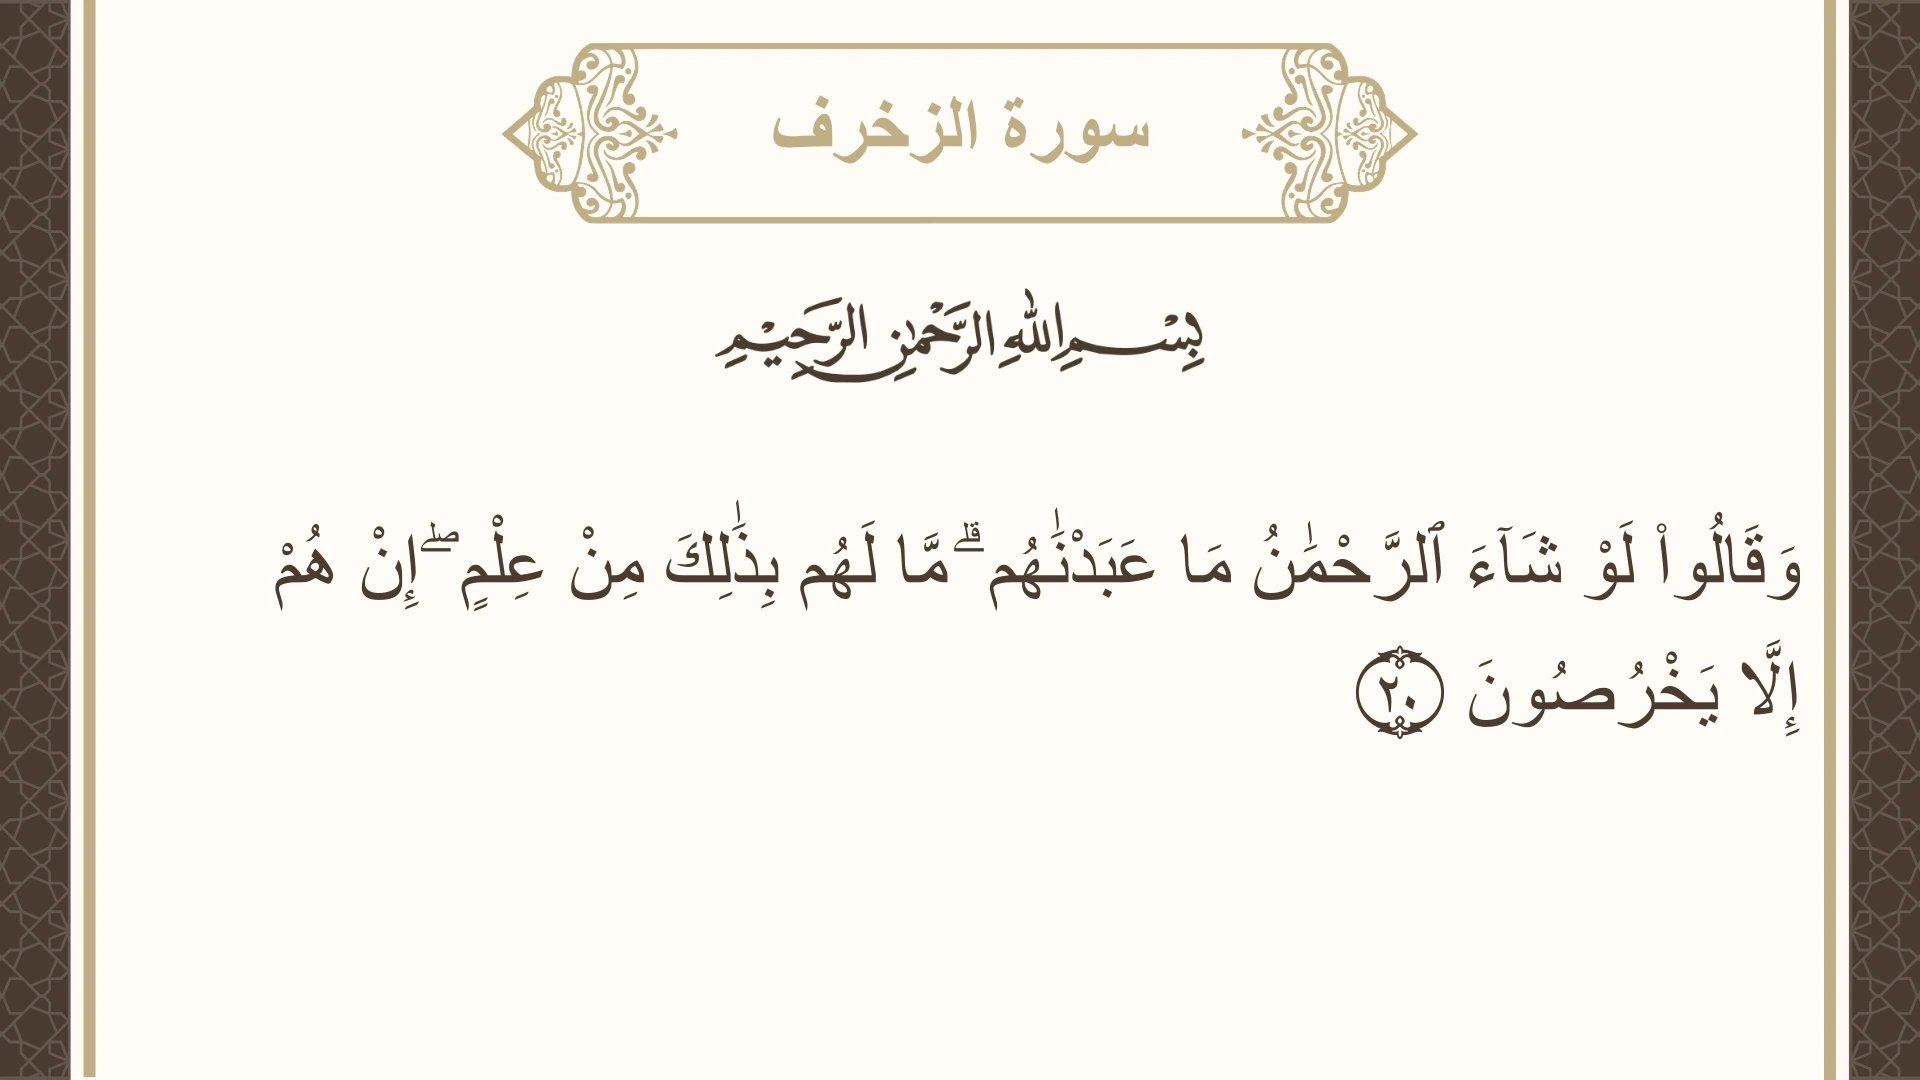 سورة الزخرف
بِسْمِ اللهِ الرَّحْمٰنِ الرَّحِيْمِ
وَقَالُوا۟ لَوْ شَآءَ ٱلرَّحْمَـٰنُ مَا عَبَدْنَـٰهُم ۗ مَّا لَهُم بِذَٰلِكَ مِنْ عِلْمٍ ۖ إِنْ هُمْ
إِلَّا يَخْرُصُونَ ٢٠